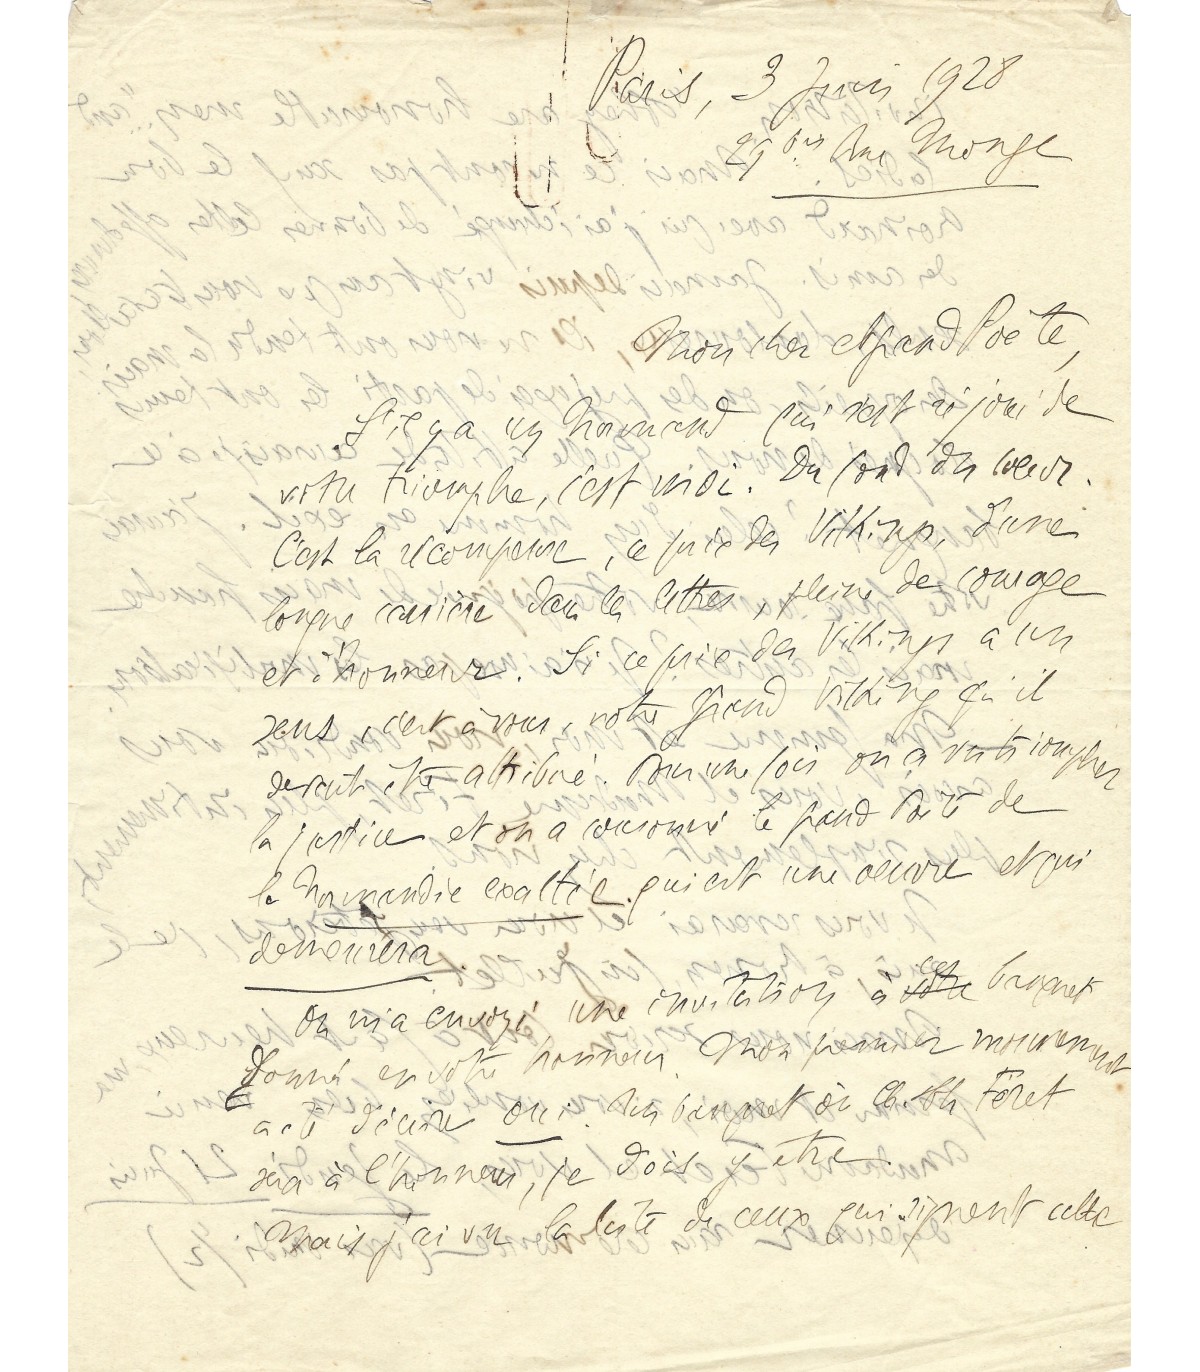 Paris, 3 Juin 1928
29 bis Rue Monge
Mon cher et grand Poète,
S'il y a un Normand qui s'est réjoui de
votre triomphe, c'est moi. Du fond du coeur.
C'est la récompense, ce prix des Vikings, d'une
longue carrière dans les lettres, pleine de courage
et d'honneur. Si ce prix des Vikings a un
sens, c'est à vous, notre grand Viking qu'il
devait être attribué. Pour une fois on a vu triompher
la justice et on a couronné le grand Poète de
la Normandie exaltée qui est une oeuvre et qui
demeurera.
On m'a envoyé une invitation à votre ces banquet
donné en votre honneur. Mon premier mouvement
a été d'écrire oui. Un banquet où Ch. Th. Féret
sera à l'honneur, je dois y être.
Mais j'ai vu la liste de ceux qui signent cette